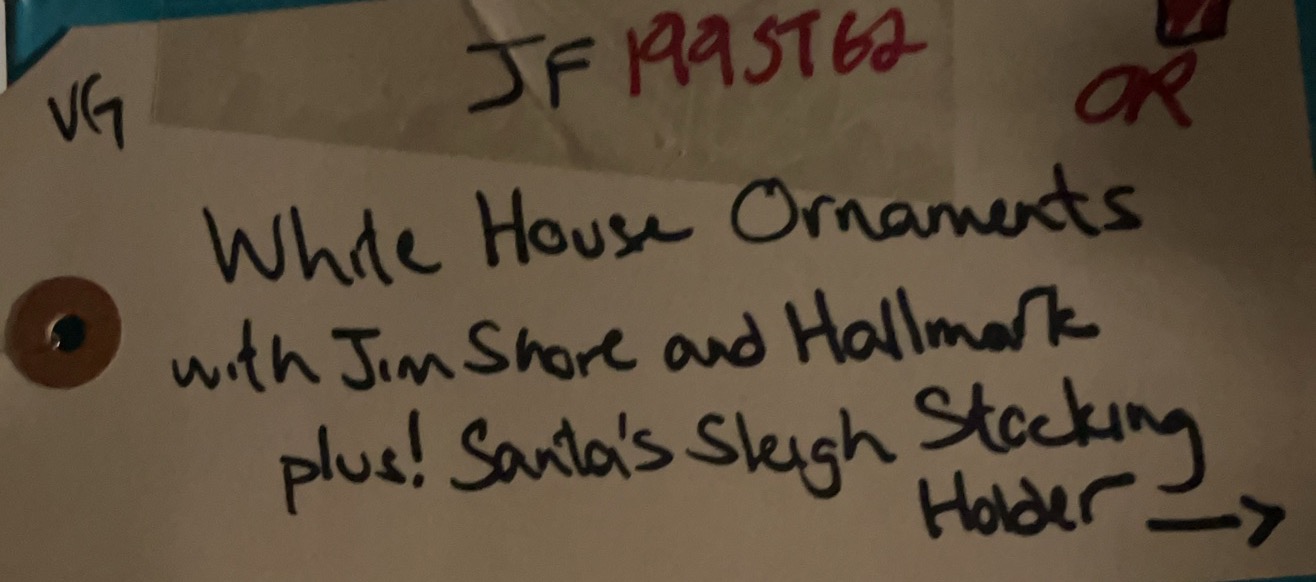 JF 1995T62
VG
OR
White House Ornaments
with Jim Shore and Hallmark
plus! Santa's Sleigh Stocking
Holder →